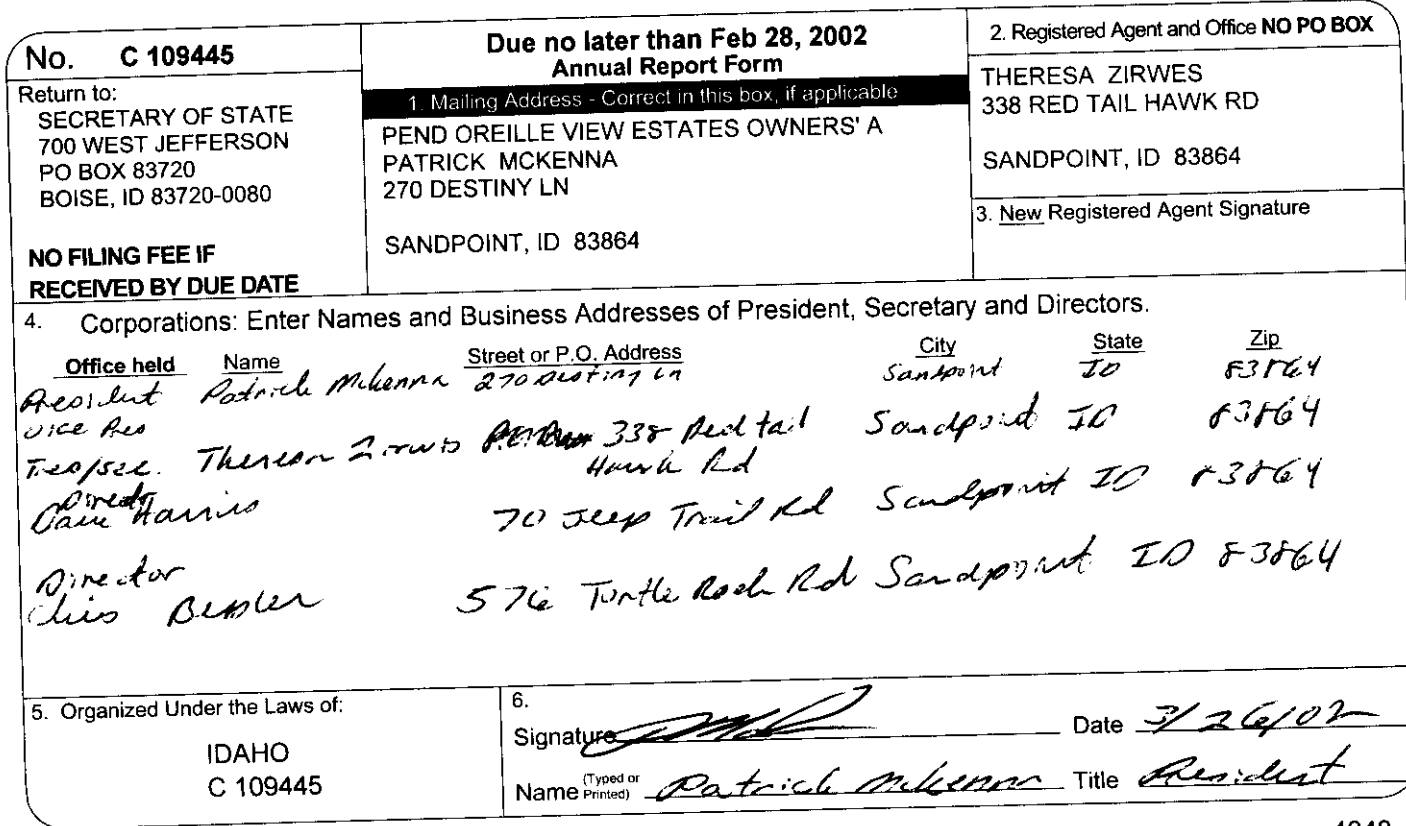 No. C 109445
Return to:
SECRETARY OF STATE
700 WEST JEFFERSON
PO BOX 83720
BOISE, ID 83720-0080
NO FILING FEE IF
RECEIVED BY DUE DATE
Due no later than Feb 28, 2002
Annual Report Form
1. Mailing Address - Correct in this box, if applicable
PEND OREILLE VIEW ESTATES OWNERS' A
PATRICK MCKENNA
270 DESTINY LN
SANDPOINT, ID 83864
2. Registered Agent and Office NO PO BOX
THERESA ZIRWES
338 RED TAIL HAWK RD
SANDPOINT, ID 83864
3. New Registered Agent Signature
4. Corporations: Enter Names and Business Addresses of President, Secretary and Directors.
Office held Name Street or P.O. Address City State Zip
President Patrick McKenna 270 Destiny Ln Sandpoint ID 83864
Vice Pres
Tres/sec. Theresa Zirwes 338 Red tail Sandpoint ID 83864
Hawk Rd
Director
Dave Harris 70 Jeep Trail Rd Sandpoint ID 83864
Director
Chris Bessler 576 Turtle Rock Rd Sandpoint ID 83864
5. Organized Under the Laws of:
IDAHO
C 109445
6.
Signature Date 3/26/02
Name (Typed or Printed) Patrick McKenna Title President